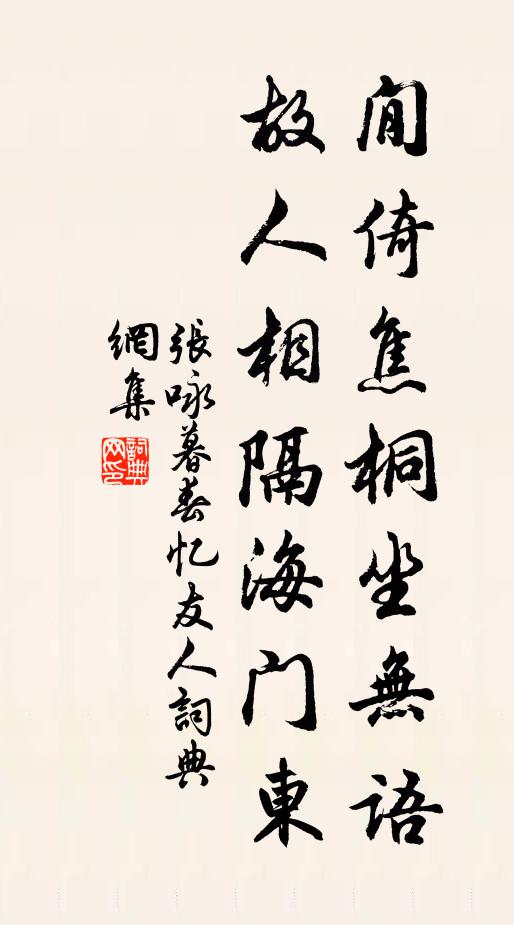 閒倚焦桐坐無語
故人相隔海門東
張咏暮春忆友人詞典
網集
詞典
网印